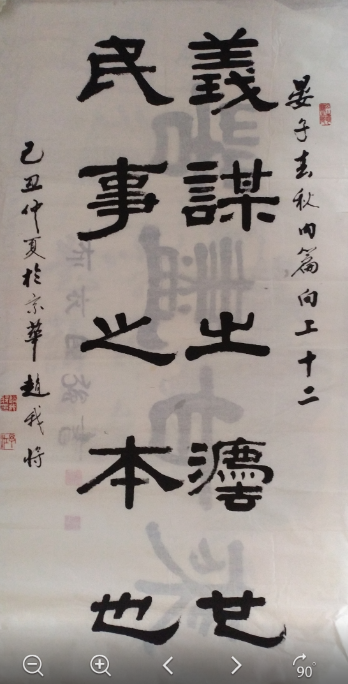 晏子春秋内篇问上十二
義謀之灋也
民事之本也
己丑仲夏於京華趙
90°